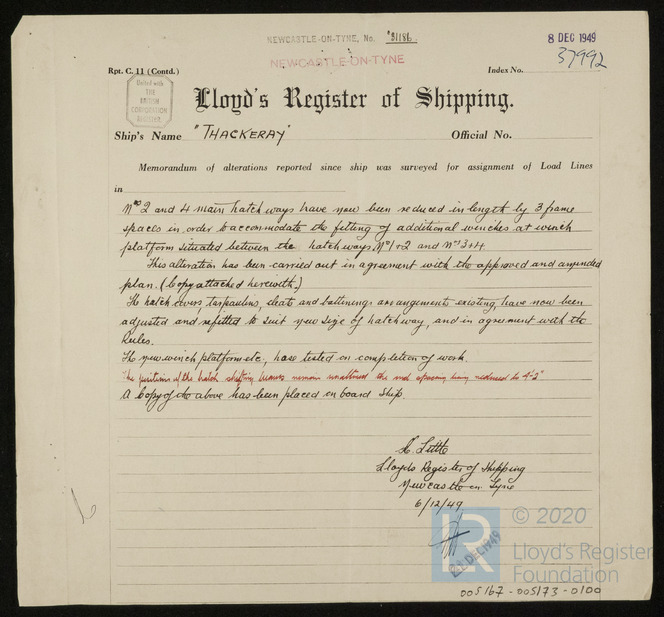 NEWCASTLE-ON-TYNE, No. 31186
8 DEC 1949
NEWCASTLE-ON-TYNE
37992
Rpt. C. 11 (Contd.)
Index No.
United with
THE
BRITISH
CORPORATION
REGISTER
Lloyd's Register of Shipping.
Ship's Name "THACKERAY"
Official No.
Memorandum of alterations reported since ship was surveyed for assignment of Load Lines
in
Nos 2 and 4 main hatchways have now been reduced in length by 3 frame
spaces in order to accommodate the fitting of additional winches at winch
platform situated between the hatchways Nos 1 & 2 and Nos 3 & 4
This alteration has been carried out in agreement with the approved and amended
plan. (Copy attached herewith.)
The hatch covers, tarpaulins, cleats and battenings arrangements existing, have now been
adjusted and refitted to suit new size of hatchway, and in agreement with the
Rules.
The new winch platform etc, hose tested on completion of work.
The positions of the hatch shifting beams remain unaltered the end spacing being reduced to 4'-2"
A Copy of the above has been placed on board Ship.
Little
Lloyds Register of Shipping
Newcastle on Tyne
6/12/49
DEC 1949
LR © 2020
Lloyd's Register
Foundation
005167-005173-0100